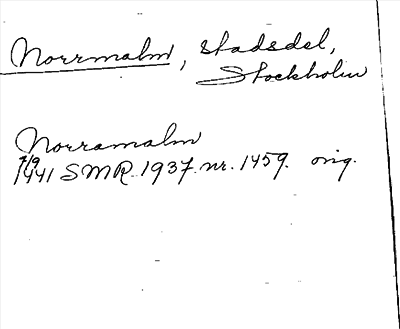 Norrmalm, stadsdel,
Stockholm
Norramalm
7/9
1441 SMR 1937. nr. 1459. orig.